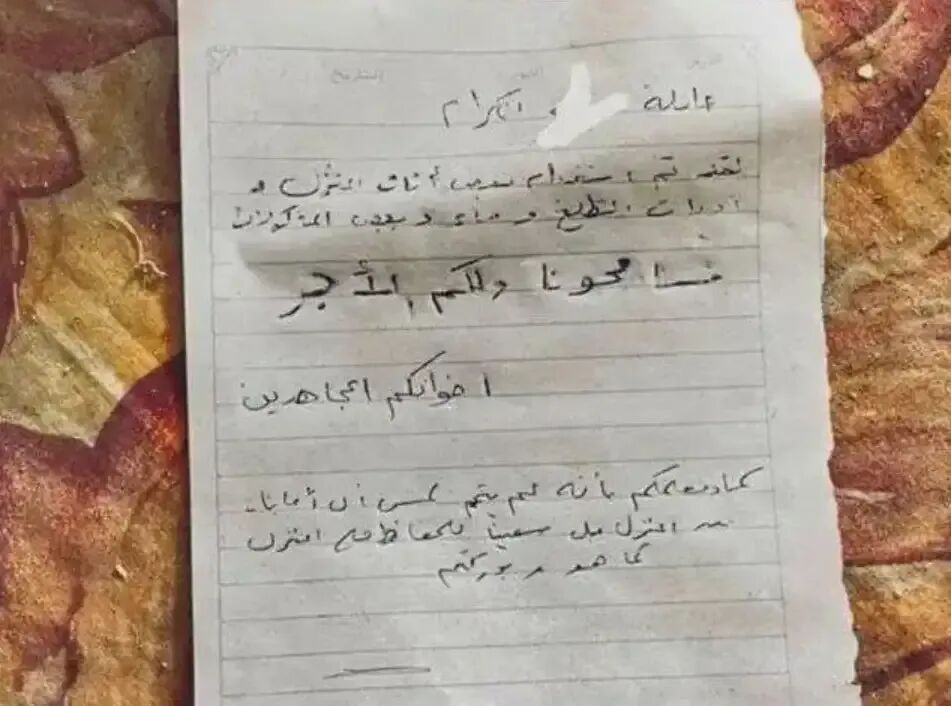 عائلة و الكرام
لقد تم استخدام بعض أثاث المنزل و
أدوات المطبخ و ماء و بعض المأكولات
فسامحونا ولكم الأجر
اخوانكم المجاهدين
كما نعلمكم بأنه لم يتم لمس أي أمانات
المنزل بل سعينا للحفاظ على المنزل
كما هو و بوركتم